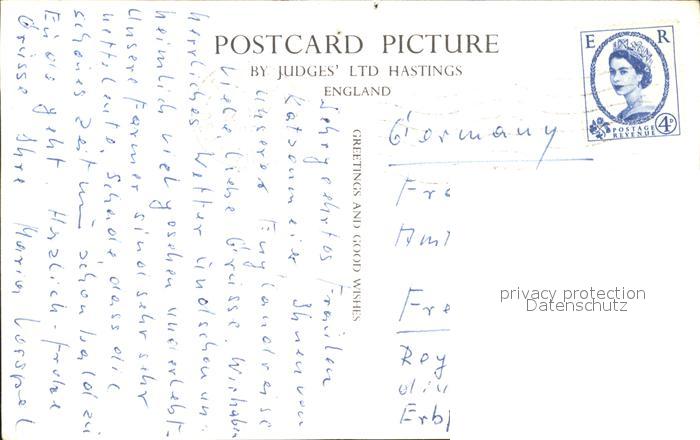 POSTCARD PICTURE
BY JUDGES' LTD HASTINGS
ENGLAND
E R
POSTAGE
REVENUE
4D
GREETINGS AND GOOD WISHES
Sehr geehrtes Fräulein
Ihnen von
unserer Englandreise
viele liebe Grüsse. Wir haben
herrliches Wetter und schon un-
heimlich viel gesehen und erlebt.
Unsere Farmer sind sehr sehr
nette Leute. Schade, dass die
schöne Zeit nun schon bald zu
Ende geht. Herzlich-frohe
Grüsse Ihre Maria
Germany
Fr
Am
Fre
Reg
Erb
privacy protection
Datenschutz